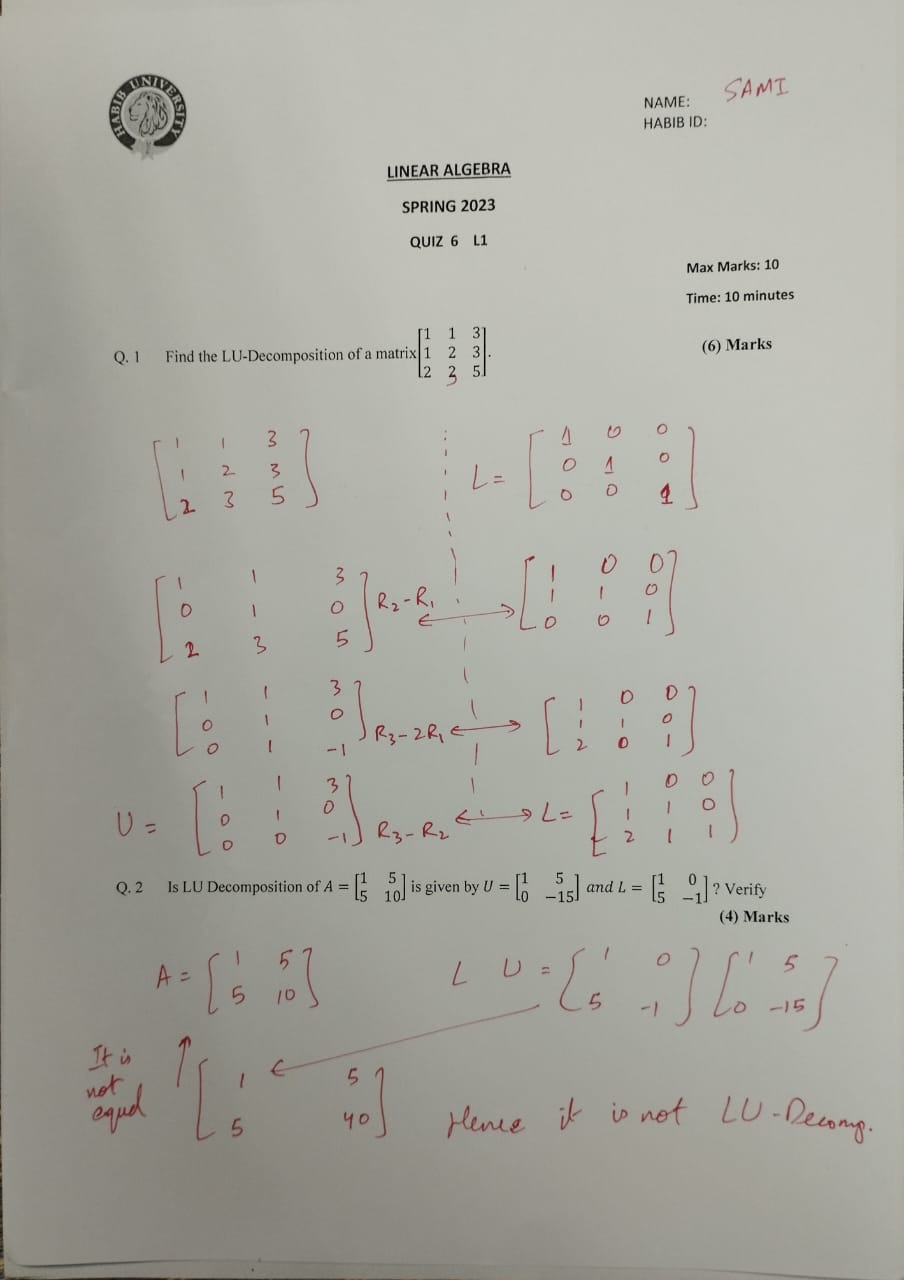 HABIB UNIVERSITY
NAME: SAMI
HABIB ID:
LINEAR ALGEBRA
SPRING 2023
QUIZ 6 L1
Max Marks: 10
Time: 10 minutes
Q. 1 Find the LU-Decomposition of a matrix [1 1 3; 1 2 3; 2 2 5]. (6) Marks
3
[1 1 3; 1 2 3; 2 3 5] L = [1 0 0; 0 1 0; 0 0 1]
[1 1 3; 0 1 0; 2 3 5] R2-R1 ↔ [1 0 0; 1 1 0; 0 0 1]
[1 1 3; 0 1 0; 0 1 -1] R3-2R1 ↔ [1 0 0; 1 1 0; 2 0 1]
U = [1 1 3; 0 1 0; 0 0 -1] R3-R2 ↔ L= [1 0 0; 1 1 0; 2 1 1]
Q. 2 Is LU Decomposition of A = [1 5; 5 10] is given by U = [1 5; 0 -15] and L = [1 0; 5 -1] ? Verify
(4) Marks
A = [1 5; 5 10] L U = [1 0; 5 -1] [1 5; 0 -15]
It is not equal ↑ [1 5; 5 40] ←
Hence it is not LU-Decomp.